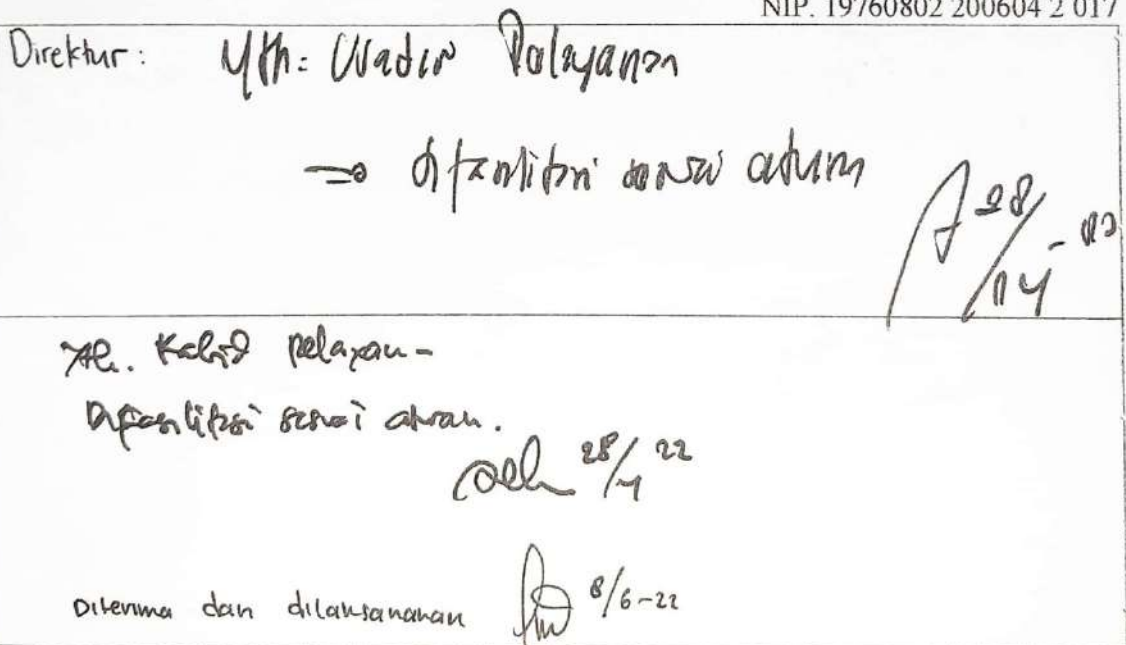 NIP. 19760802 200604 2 017
Direktur: Yth: Wadir Pelayanan
⇒ difasilitasi sesuai aturan
28/04-22
Yth. Kabid pelayanan
Difasilitasi sesuai aturan.
28/4 22
Diterima dan dilaksanakan 8/6-22